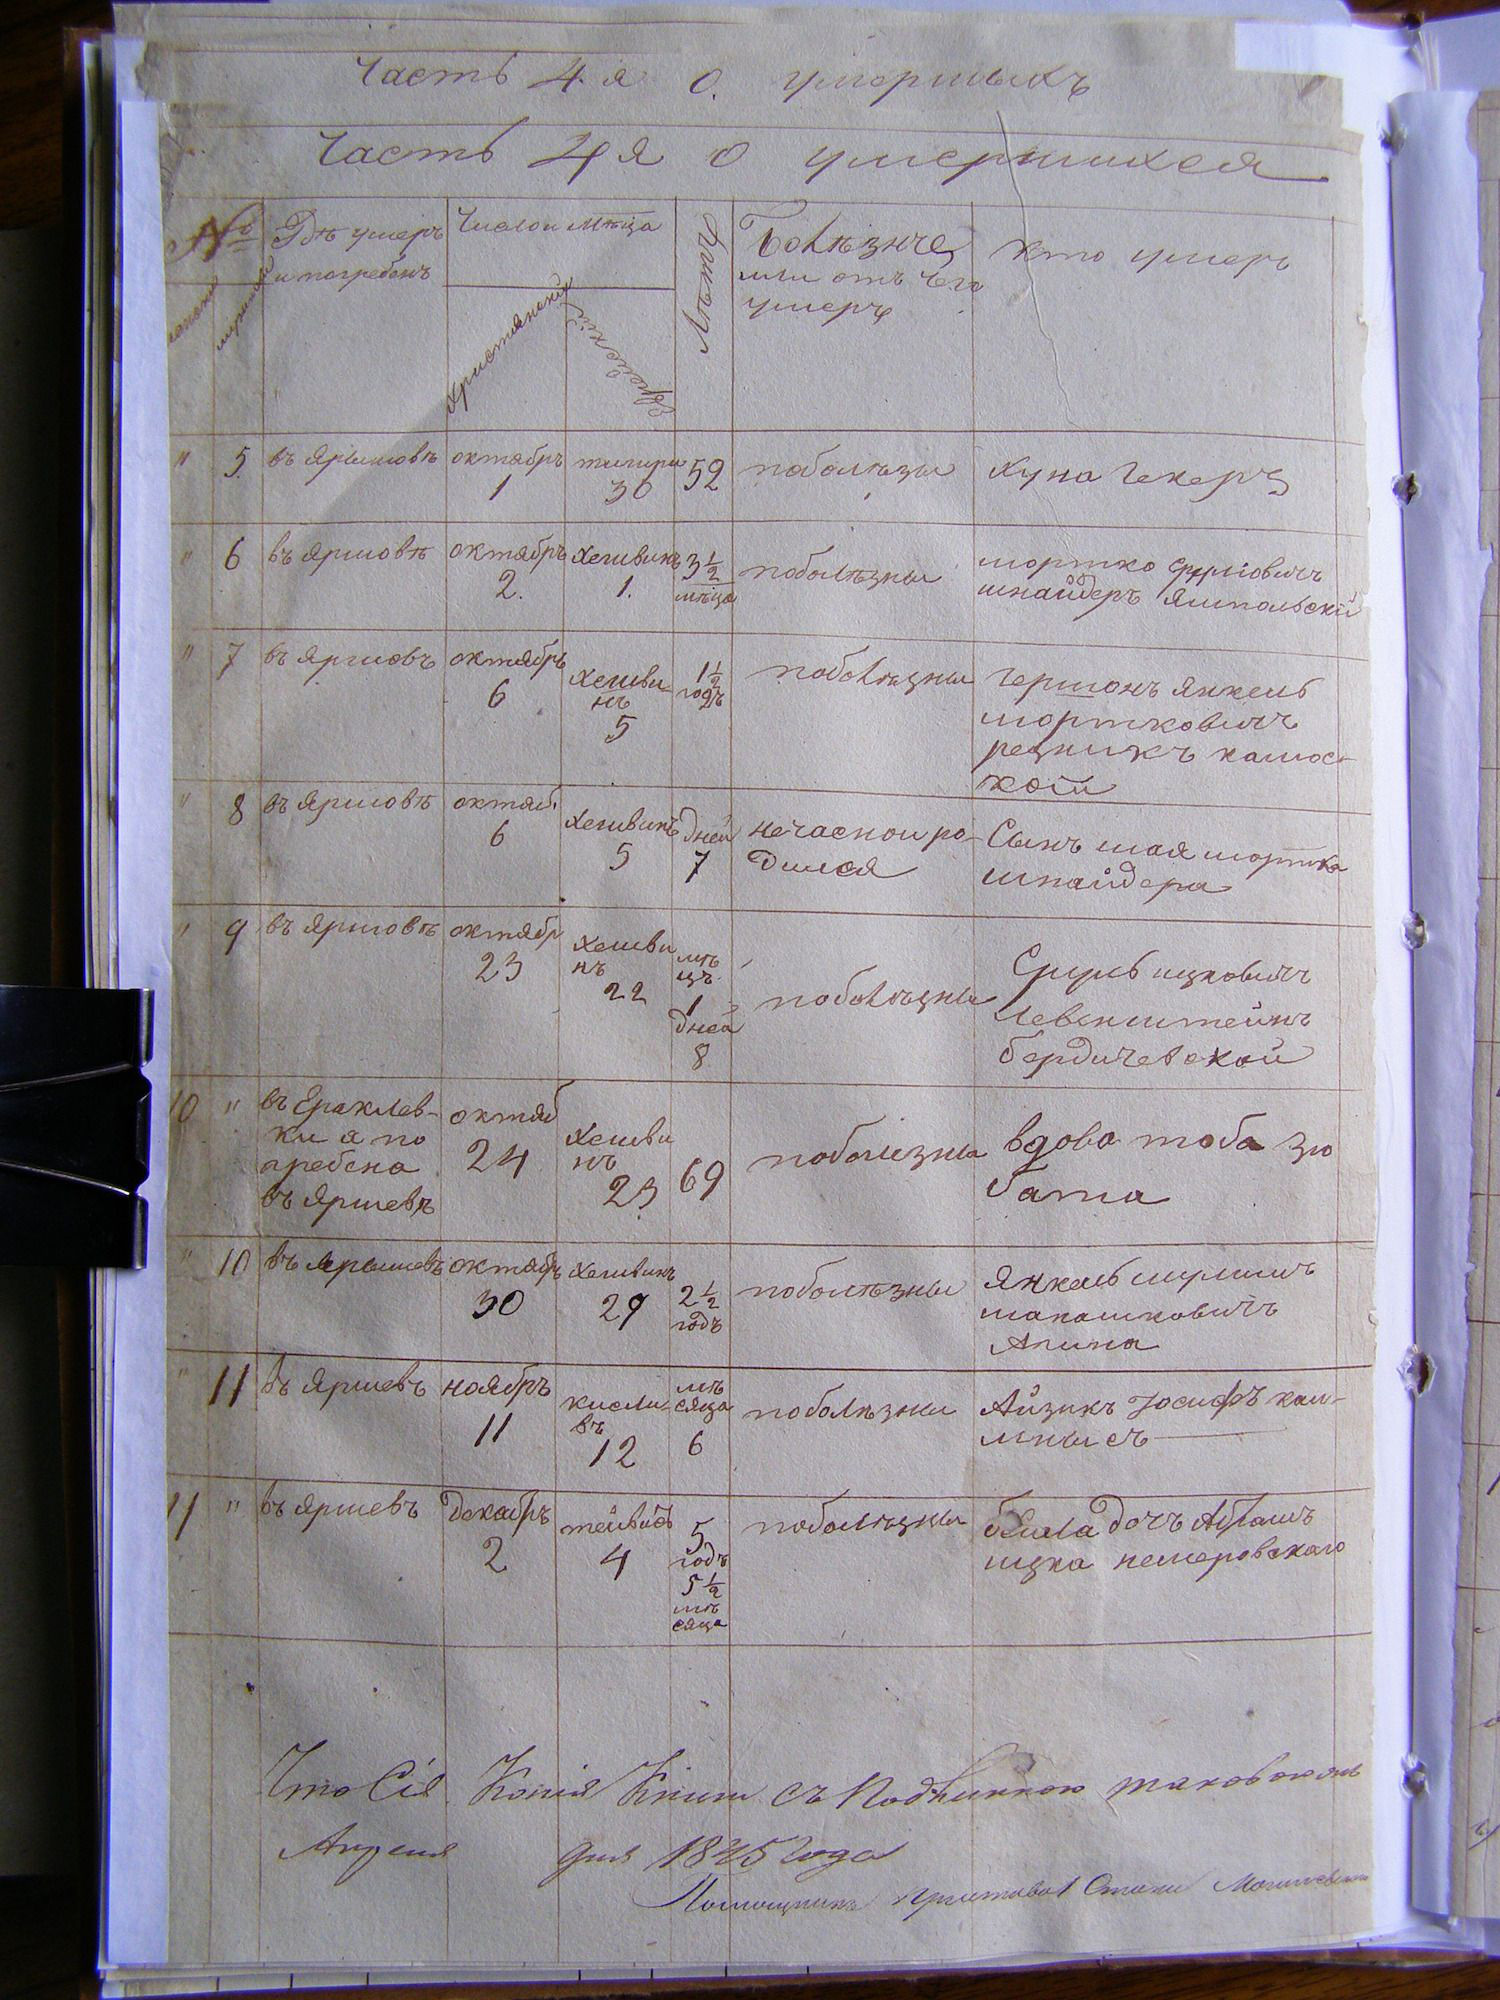 Часть 4я о умершихъ
Часть 4я о умершихся
№
женски
мужески
Гдѣ умеръ
и погребенъ
Число и мѣца
Христіянскій
Еврейскій
Лѣта
Болѣзнь
или отъ чего
умеръ
Кто умеръ
" 5 въ Ярышовѣ октябрь 1 тишри 30 52 поболѣзни Хуна Чекеръ
" 6 въ Яршовѣ октябрь 2. Хешвинъ 1. 3 1/2 мѣца поболѣзни
мортко Сруліовичъ
шнайдеръ Ямпольскій
" 7 въ Яршовъ октябрь 6 Хешви-
нъ 5
1 1/2 годъ
поболѣзни
Гершонъ Янкель
мортковичъ
резникъ
" 8 въ Яршовѣ октяб. 6 Хешвинъ 5 дней 7
нечаснои ро-
дился
Сынъ шая мортка
шнайдера
" 9 въ Яршовѣ октябр 23 Хешви
нъ 22
мѣ
цъ
1
дней
8
поболѣзни
Сруль ицковичъ
Левенштейнъ
бердичевской
10 " въ Ераклев-
ки я по
гребена
въ Яршевѣ
октяб 24
Хешви
нъ 23
69 поболизни
вдова тоба зю
бата
" 10 въ Ярышевѣ октябрь 30 Хешвинъ 29
2 1/2
годъ
поболѣзни
Янкель
Апина
" 11 въ Яршевъ ноябрь 11
кисли-
въ 12
мѣ
сяца
6
поболѣзни
Айзикъ Іосифъ кал-
мнысъ
11 " въ Яршевъ декабрь 2 тейвисъ 4
5
годъ
5 1/2
мѣ
сяца
поболѣзни
бейла дочъ Абрамъ
ицка немеровскаго
Что Сія Копія Книги съ Подлинною таковою
Апреля дня 1845 года
Помощникъ Пристава Стана